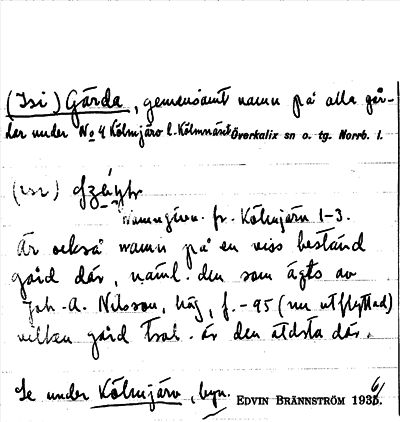 (Isi) Gärda, gemensamt namn på alla går-
dar under No 4 Kölmjärv l. Kölmnäset Överkalix sn o. tg. Norrb. l.
Namngivn. fr. Kölmjärv 1-3.
Är också namn på en viss bestånd
gård där, näml. den som ägts av
Joh. A. Nilsson, häg, f. -95 (nu utflyttad)
vilken gård trol. är den äldsta där.
Se under Kölmjärv, byn. EDVIN BRÄNNSTRÖM 1936.